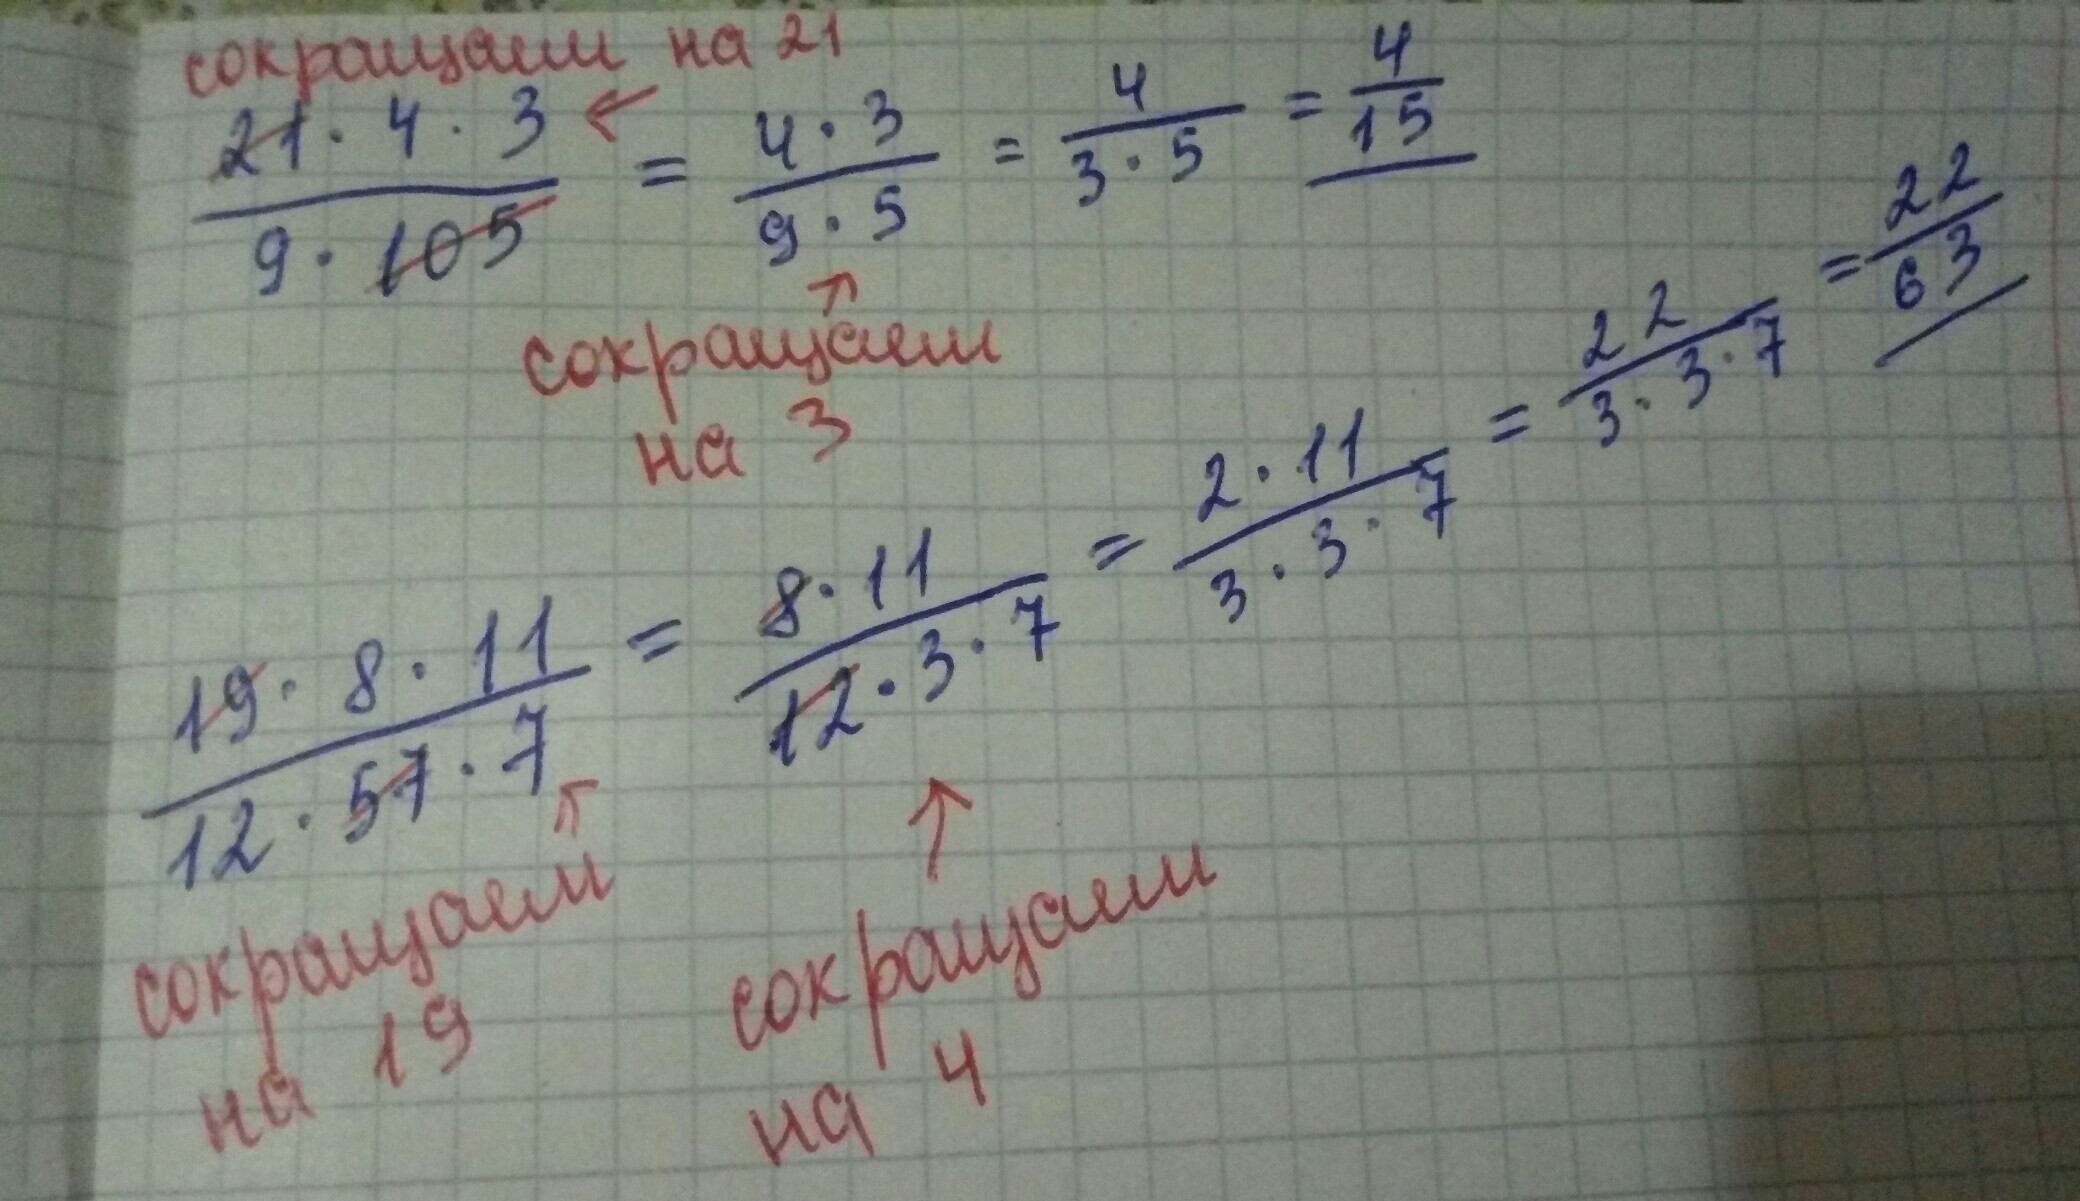 сокращаем на 21
21 · 4 · 3 / 9 · 105 = 4 · 3 / 9 · 5 = 4 / 3 · 5 = 4 / 15
сокращаем
на 3
19 · 8 · 11 / 12 · 57 · 7 = 8 · 11 / 12 · 3 · 7 = 2 · 11 / 3 · 3 · 7 = 22 / 3 · 3 · 7 = 22 / 63
сокращаем
на 19
сокращаем
на 4